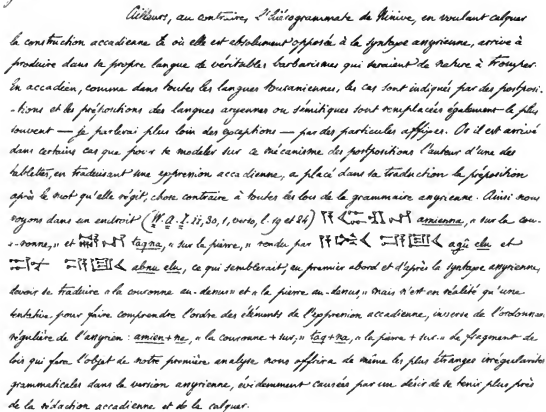 Ailleurs, au contraire, l'hiérogrammate de Ninive, en voulant calquer
la construction accadienne là où elle est absolument opposée à la syntaxe assyrienne, arrive à
produire dans sa propre langue de véritables barbarismes qui seraient de nature à tromper.
En accadien, comme dans toutes les langues touraniennes, les cas sont indiqués par des postposi-
-tions et les prépositions des langues aryennes ou sémitiques sont remplacées également le plus
souvent — je parlerai plus loin des exceptions — par des particules affixes. Or il est arrivé
dans certains cas que pour se modeler sur ce mécanisme des postpositions l'auteur d'une des
tablettes, en traduisant une expression accadienne, a placé dans sa traduction la préposition
après le mot qu'elle régit, chose contraire à toutes les lois de la grammaire assyrienne. Ainsi nous
voyons dans un endroit (W. A. I. ii, 30, 1, verso, l. 19 et 24) amienna, « sur la cou-
-ronne, » et tagna, « sur la pierre, » rendu par agû elu et
abnu elu, ce qui semblerait, au premier abord et d'après la syntaxe assyrienne,
devoir se traduire « la couronne au-dessus » et « la pierre au-dessus, » mais n'est en réalité qu'une
tentative pour faire comprendre l'ordre des éléments de l'expression accadienne, inverse de l'ordonnance
régulière de l'assyrien : amien+na, « la couronne + sur, » tag+na, « la pierre + sur. » Le fragment de
lois qui fera l'objet de notre première analyse nous offrira de même les plus étranges irrégularités
grammaticales dans la version assyrienne, évidemment causées par un désir de se tenir plus près
de la rédaction accadienne et de la calquer.